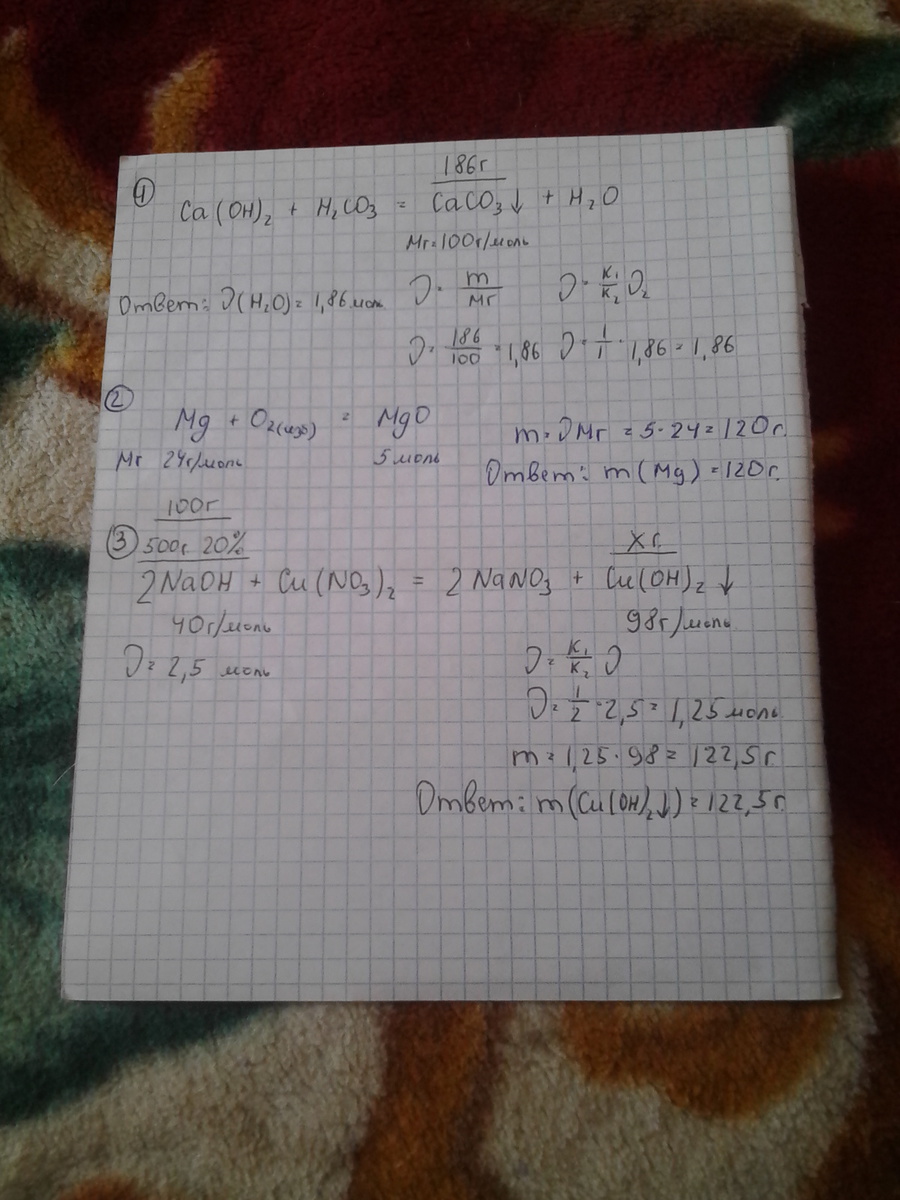 1
186г
Ca(OH)₂ + H₂CO₃ = CaCO₃↓ + H₂O
Mr=100г/моль
Ответ: ν(H₂O)=1,86моль
ν=m/Mr ν=K₁/K₂ ν₂
ν=186/100=1,86 ν=1/1·1,86=1,86
2
Mg + O₂(изб) = MgO
Mr 24г/моль 5моль
m=νMr=5·24=120г.
Ответ: m(Mg)=120г.
100г
3 500г 20% xг
2NaOH + Cu(NO₃)₂ = 2NaNO₃ + Cu(OH)₂↓
40г/моль 98г/моль
ν=2,5 моль
ν=K₁/K₂ ν
ν=1/2·2,5=1,25моль
m=1,25·98=122,5г
Ответ: m(Cu(OH)₂↓)=122,5г.